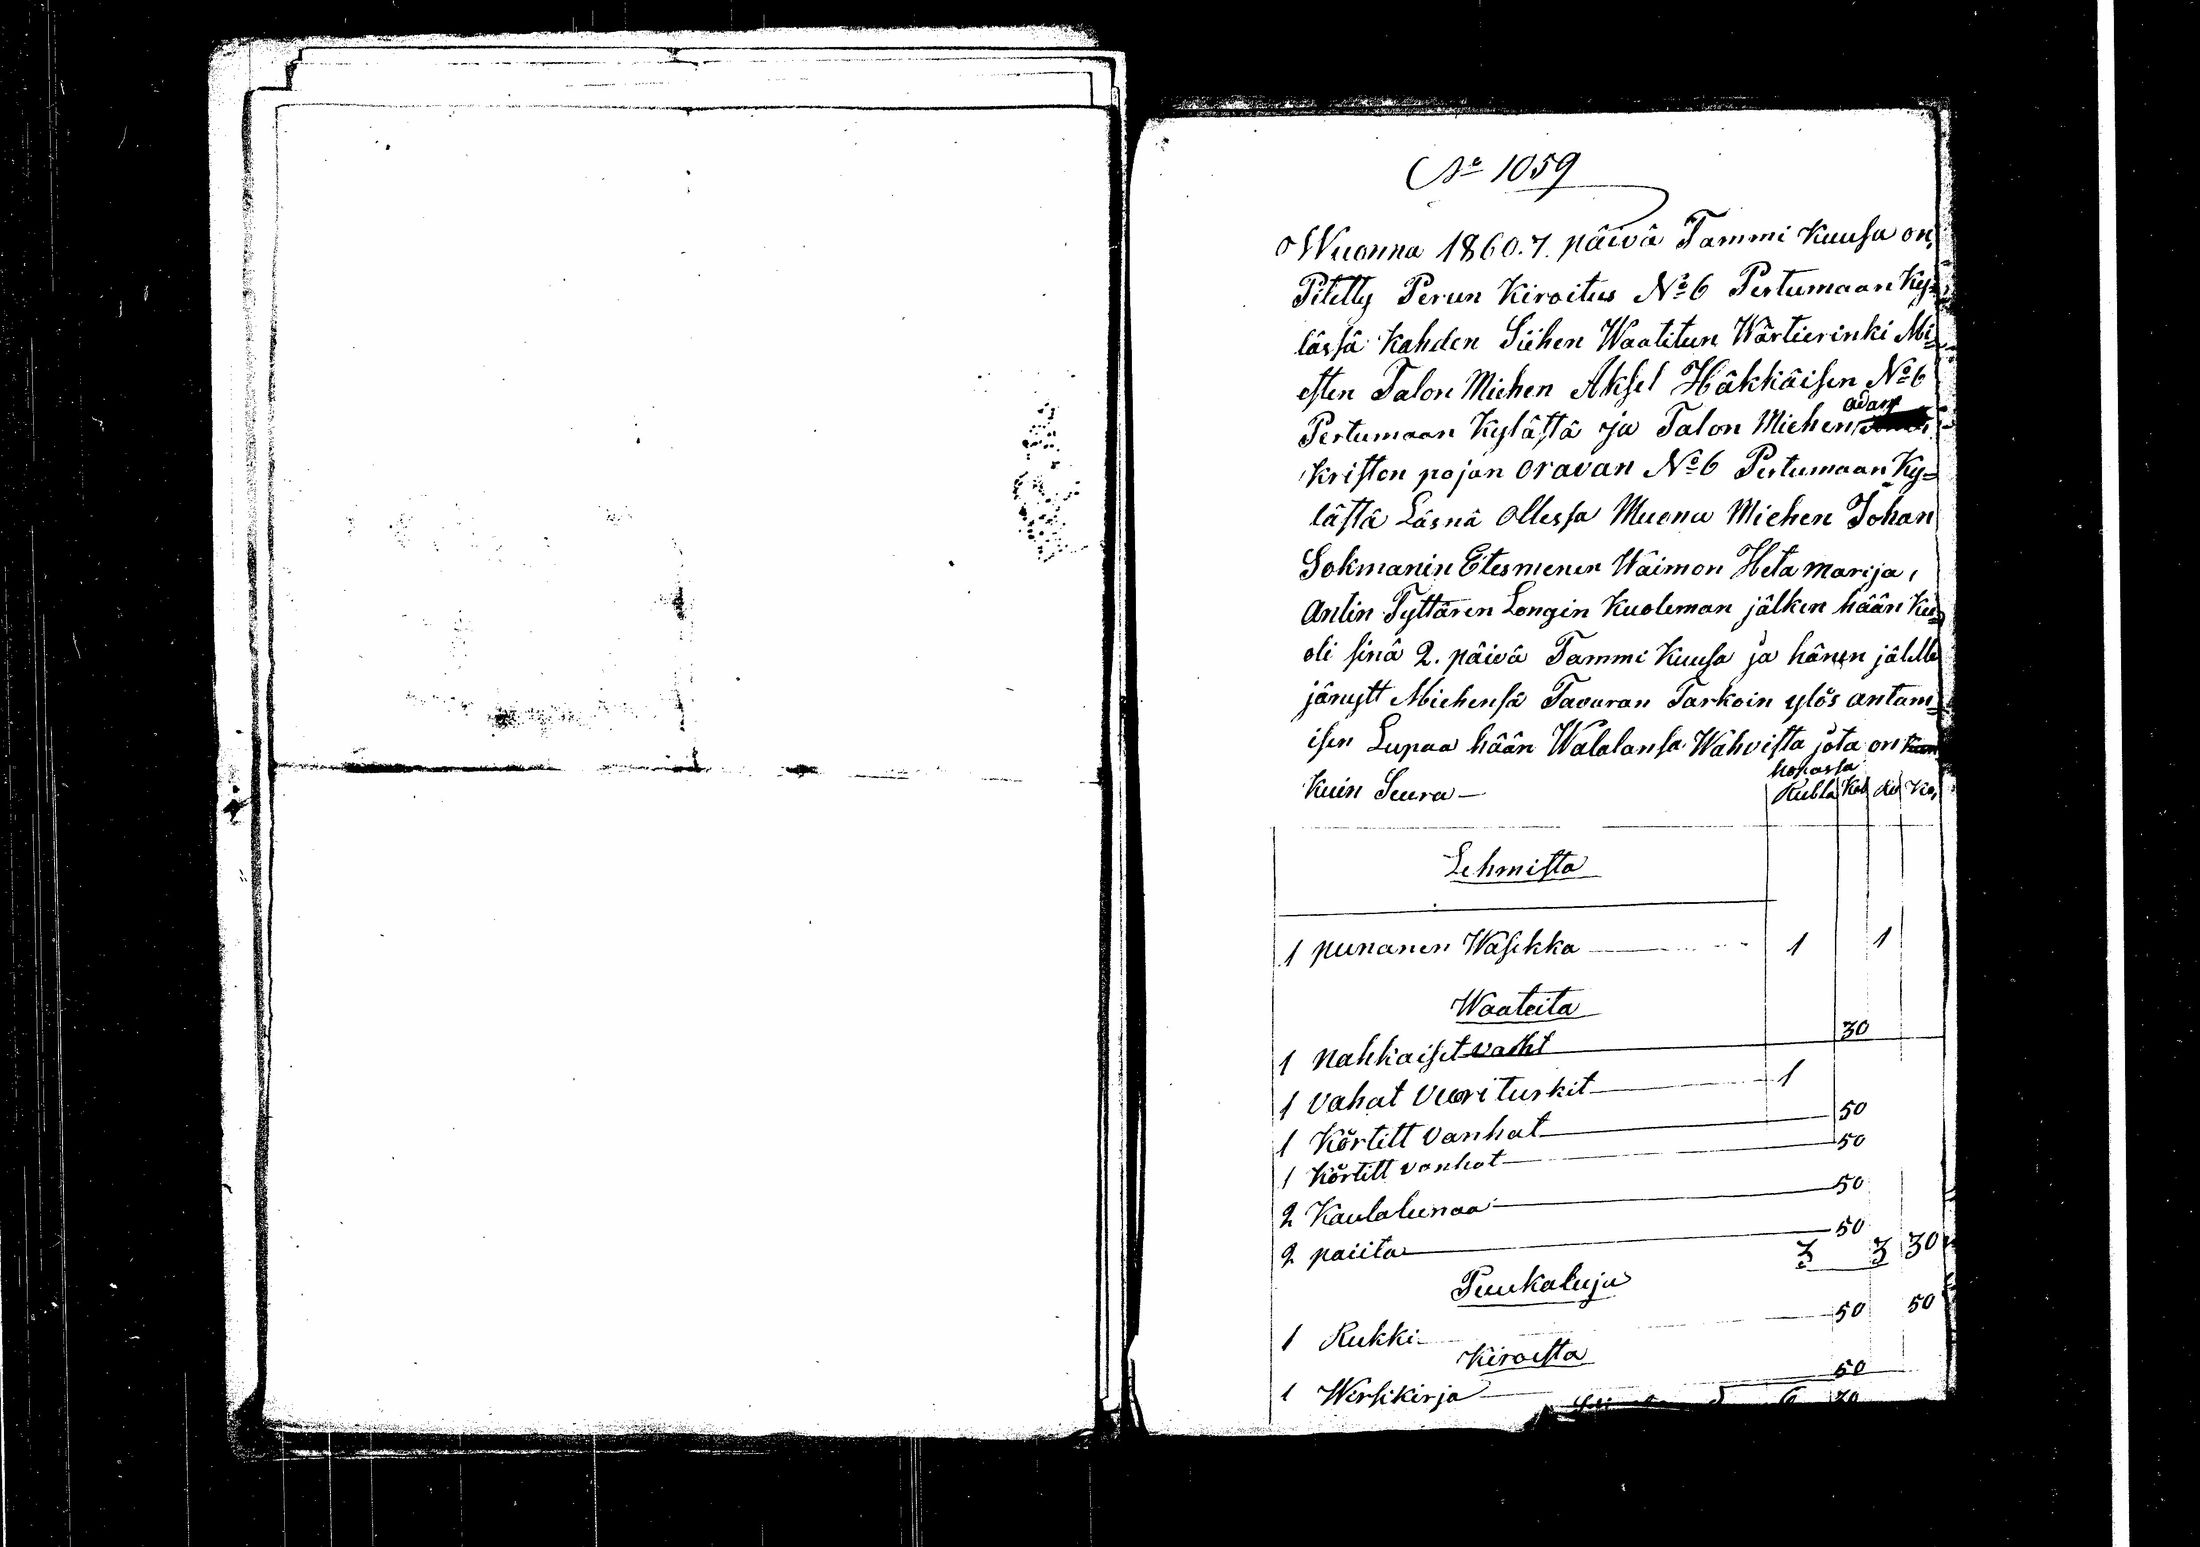 No 1059
Wuonna 1860. 7. päivä Tammi Kuusa on
Piteltty Perun Kiroitus No 6 Pertumaan Ky=
lässä Kahden Siihen Waatitun Wärtierinki Mi=
esten Talon Miehen Aksel Häkkäisen No 6
Pertumaan Kylästä ja Talon Miehen adam
Kriston pojan oravan No 6 Pertumaan Ky=
lästä Läsnä Ollessa Muonu Miehen Johan
Sokmanin Etesmenen Waimon Heta marija
Antin Tyttären Longin Kuoleman jälken hään Ku=
oli sinä 2. päivä Tammi Kuusa ja hänen jälelle
jänytt Miehensä Tavaran Tarkoin ylös antam=
isen Lupaa hään Walalansa Wahvista jota on
Kuin Seura —
hopassa
Rubla Kob Ru Ko
Lehmista
1 punanen Wasikka 1 1
Waateita
1 Nahkaiset vacht 30
1 vahat vuori turkit 1
1 Körtitt vanhat 50
1 Körtitt vanhat 50
2 Kaulalunaa 50
2 paiita 50
3 3 30
Puukaluja
1 Rukki 50 50
Kiroista
1 Wirsikirja 50